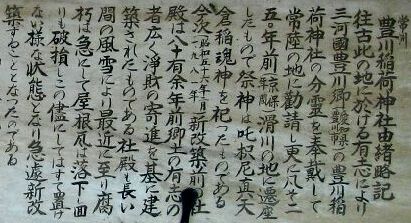 常川
豊川稲荷神社由緒略記
往古此の地に於ける有志により
三河國豊川郷愛知縣の豊川稲
荷神社の分霊を奉戴して
常座の地に勧請し更に八十二
五年前滑川の地に遷座
したもので祭神は吒枳尼真天
倉稲魂神を祀ったものである
今次昭和五十六年十月一九八一年新改築前の社
殿は八十有余年前郷土の有志の
者広く淨財の寄進を基に建
築されたものである社殿も長い
間の風雪により最近に至り腐
朽は急にして屋根瓦は落下し四
りも破損しこの儘にしてはすて置け
ない様な状態となり急遽新改
築することとなったのである